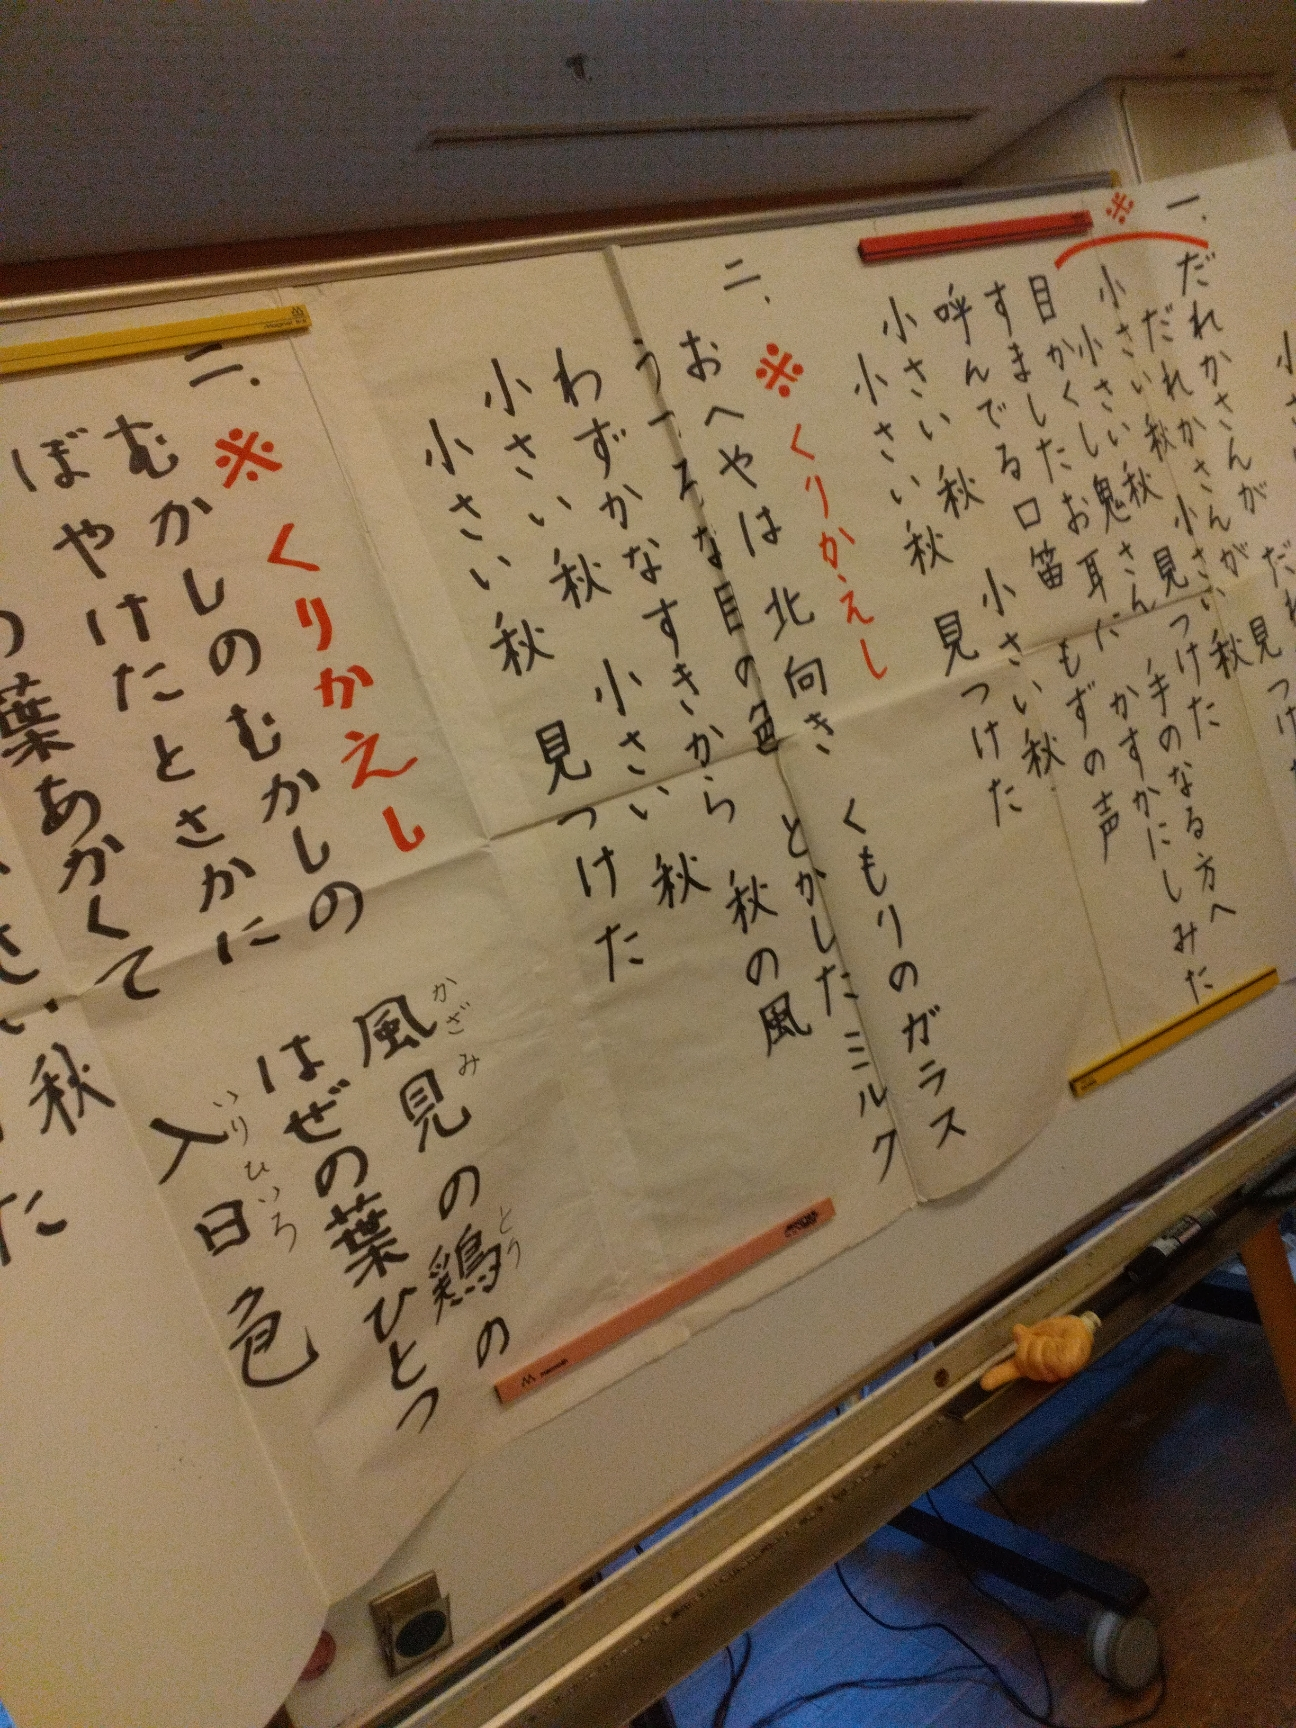 小さい
一、
※
だれかさんが だれ
だれかさんが 見つけ
小さい秋 小さい秋
小さい秋 見つけた
目かくし鬼さん 手のなる方へ
すましたお耳に かすかにしみた
呼んでる口笛 もずの声
小さい秋 小さい秋
小さい秋 見つけた
二、
※ くりかえし
おへやは北向き くもりのガラス
うつろな目の色 とかしたミルク
わずかなすきから 秋の風
小さい秋 小さい秋
小さい秋 見つけた
二、
※ くりかえし
むかしのむかしの 風見の鶏の
かざみ とり
ぼやけたとさかに はぜの葉ひとつ
の葉あかくて 入日色
いりひいろ
さい秋
た